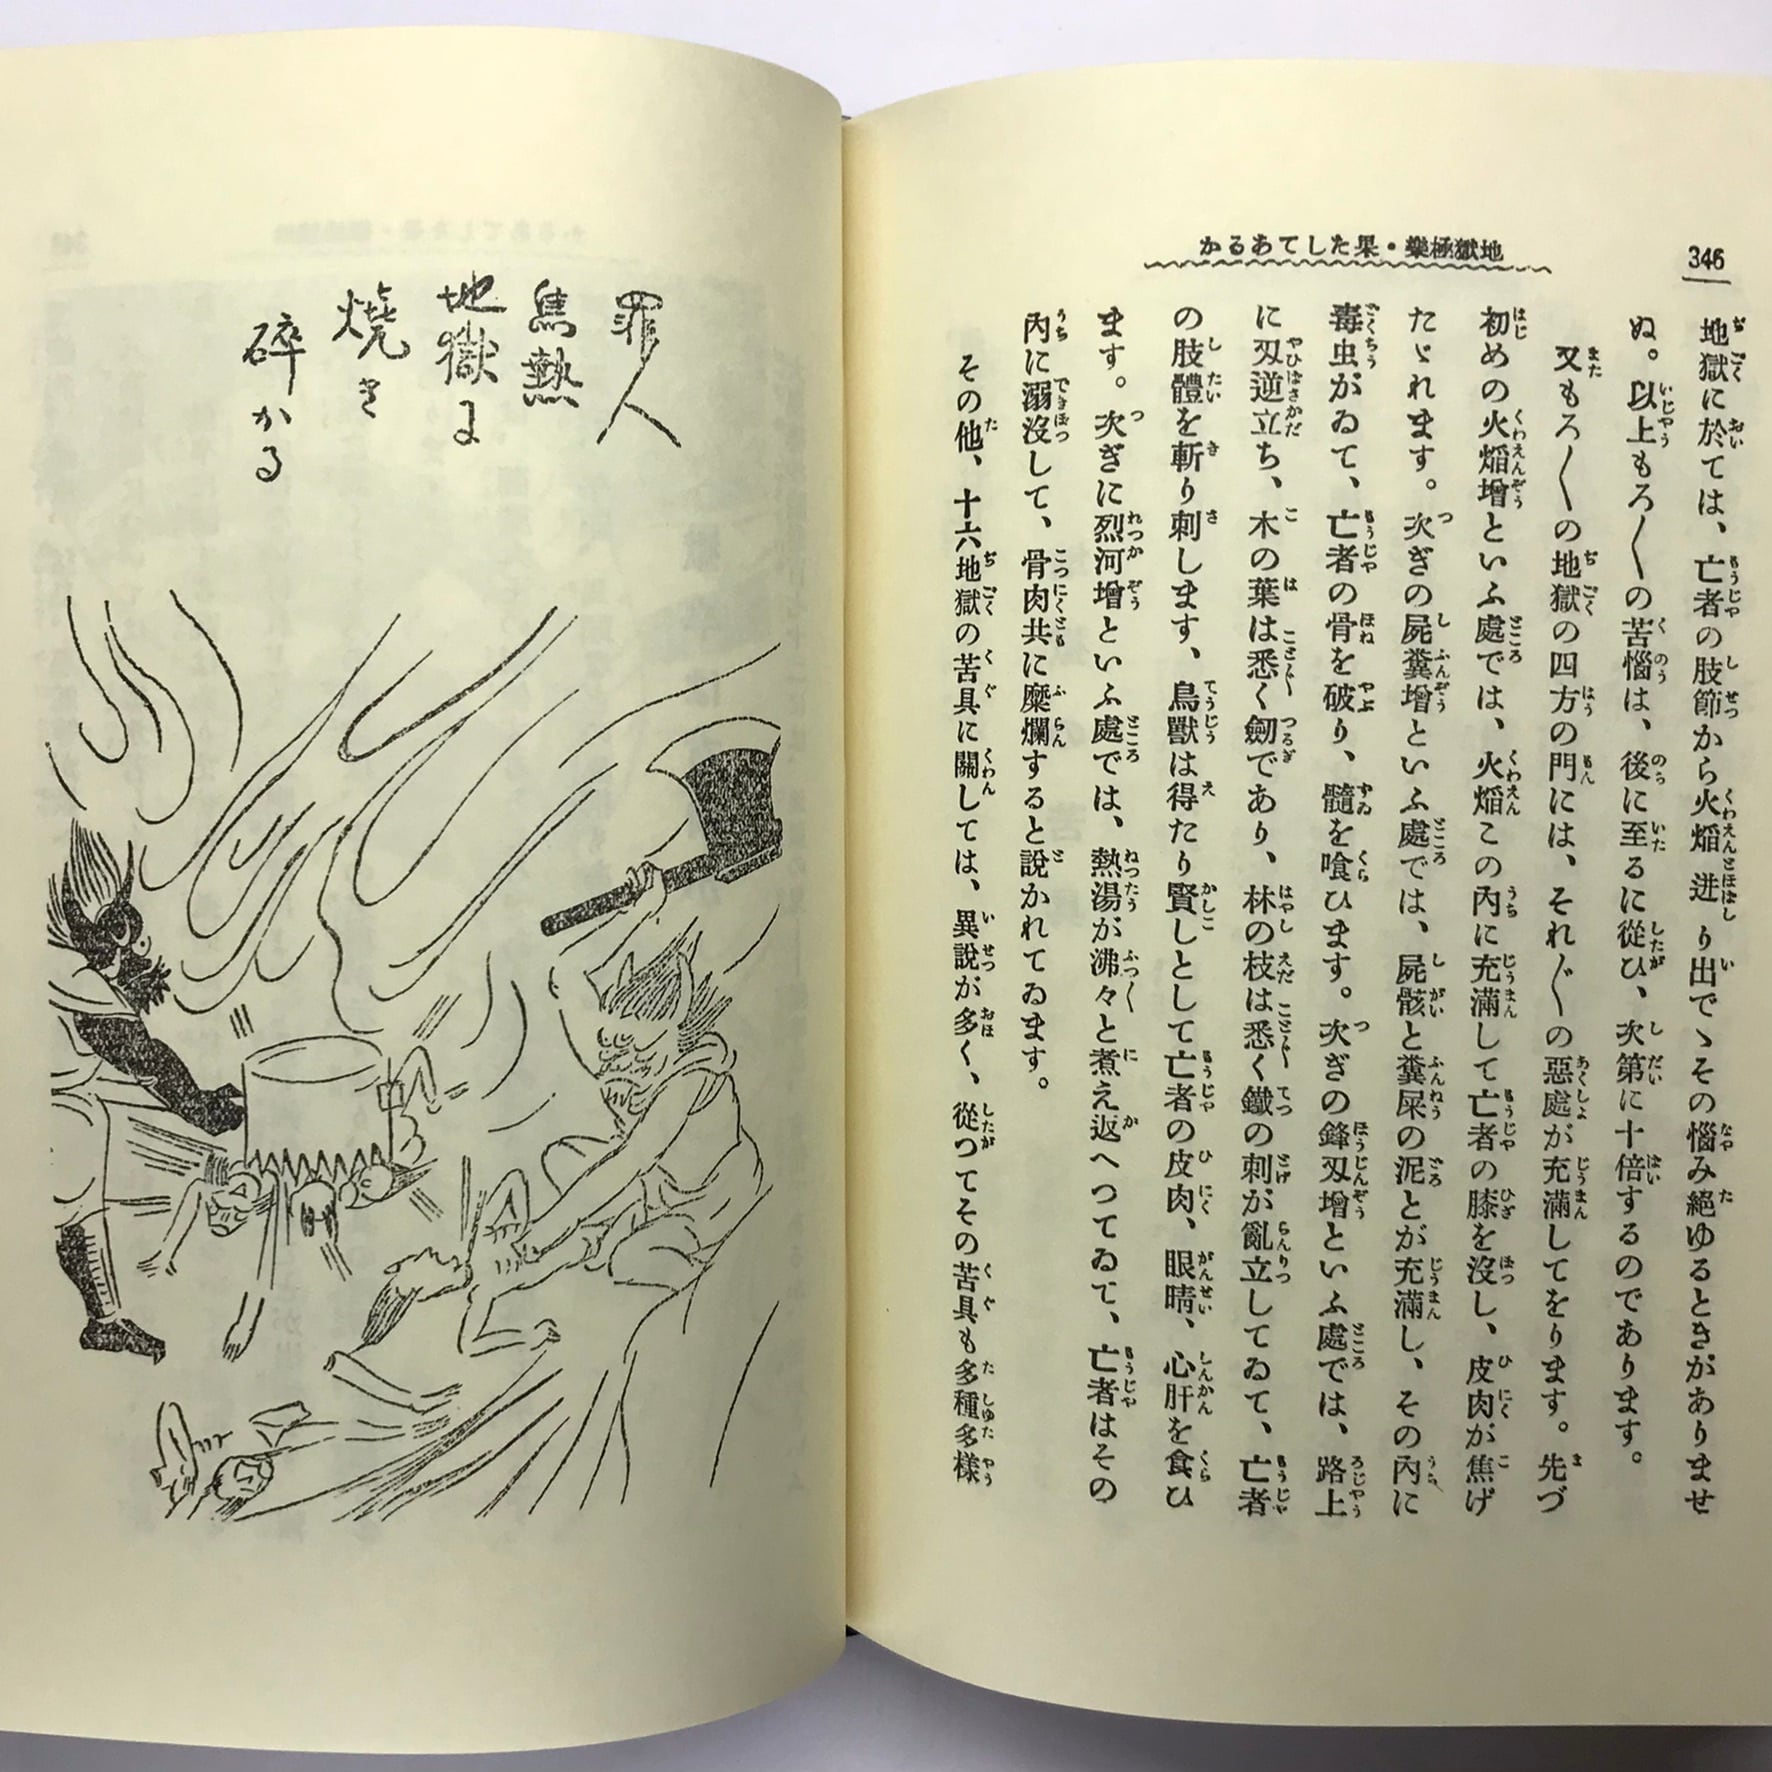 346
地獄極樂・果たしてあるか
地獄に於ては、亡者の肢節から火焰迸り出でゝその惱み絕ゆるときがありませ
ぬ。以上もろ〱の苦惱は、後に至るに從ひ、次第に十倍するのであります。
又もろ〱の地獄の四方の門には、それ〲の惡處が充滿してをります。先づ
初めの火焰增といふ處では、火焰この內に充滿して亡者の膝を沒し、皮肉が焦げ
たゞれます。次ぎの屍糞增といふ處では、屍骸と糞屎の泥とが充滿し、その內に
毒虫がゐて、亡者の骨を破り、髓を喰ひます。次ぎの鋒刄增といふ處では、路上
に刄逆立ち、木の葉は悉く劒であり、林の枝は悉く鐵の刺が亂立してゐて、亡者
の肢體を斬り刺します、鳥獸は得たり賢しとして亡者の皮肉、眼睛、心肝を食ひ
ます。次ぎに烈河增といふ處では、熱湯が沸々と煮え返へつてゐて、亡者はその
內に溺沒して、骨肉共に糜爛すると說かれてゐます。
その他、十六地獄の苦具に關しては、異說が多く、從つてその苦具も多種多樣
罪人
焦熱
地獄に
燒き
碎かる